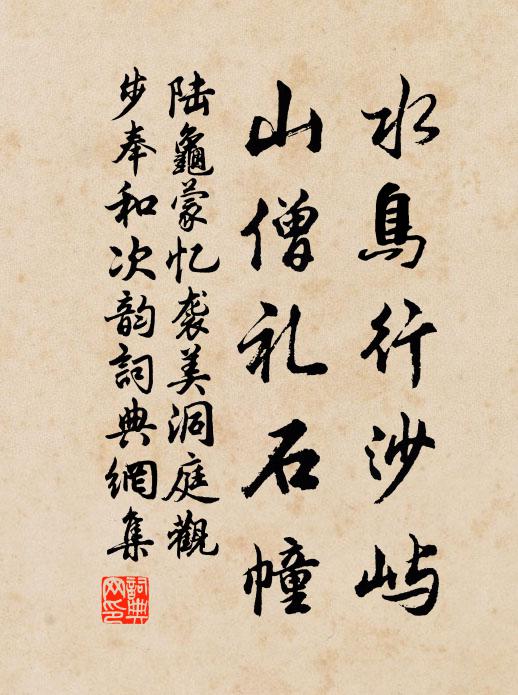 水鳥行沙嶼
山僧礼石幢
陆龜蒙忆袭美洞庭觀
步奉和次韵詞典網集
詞典網印